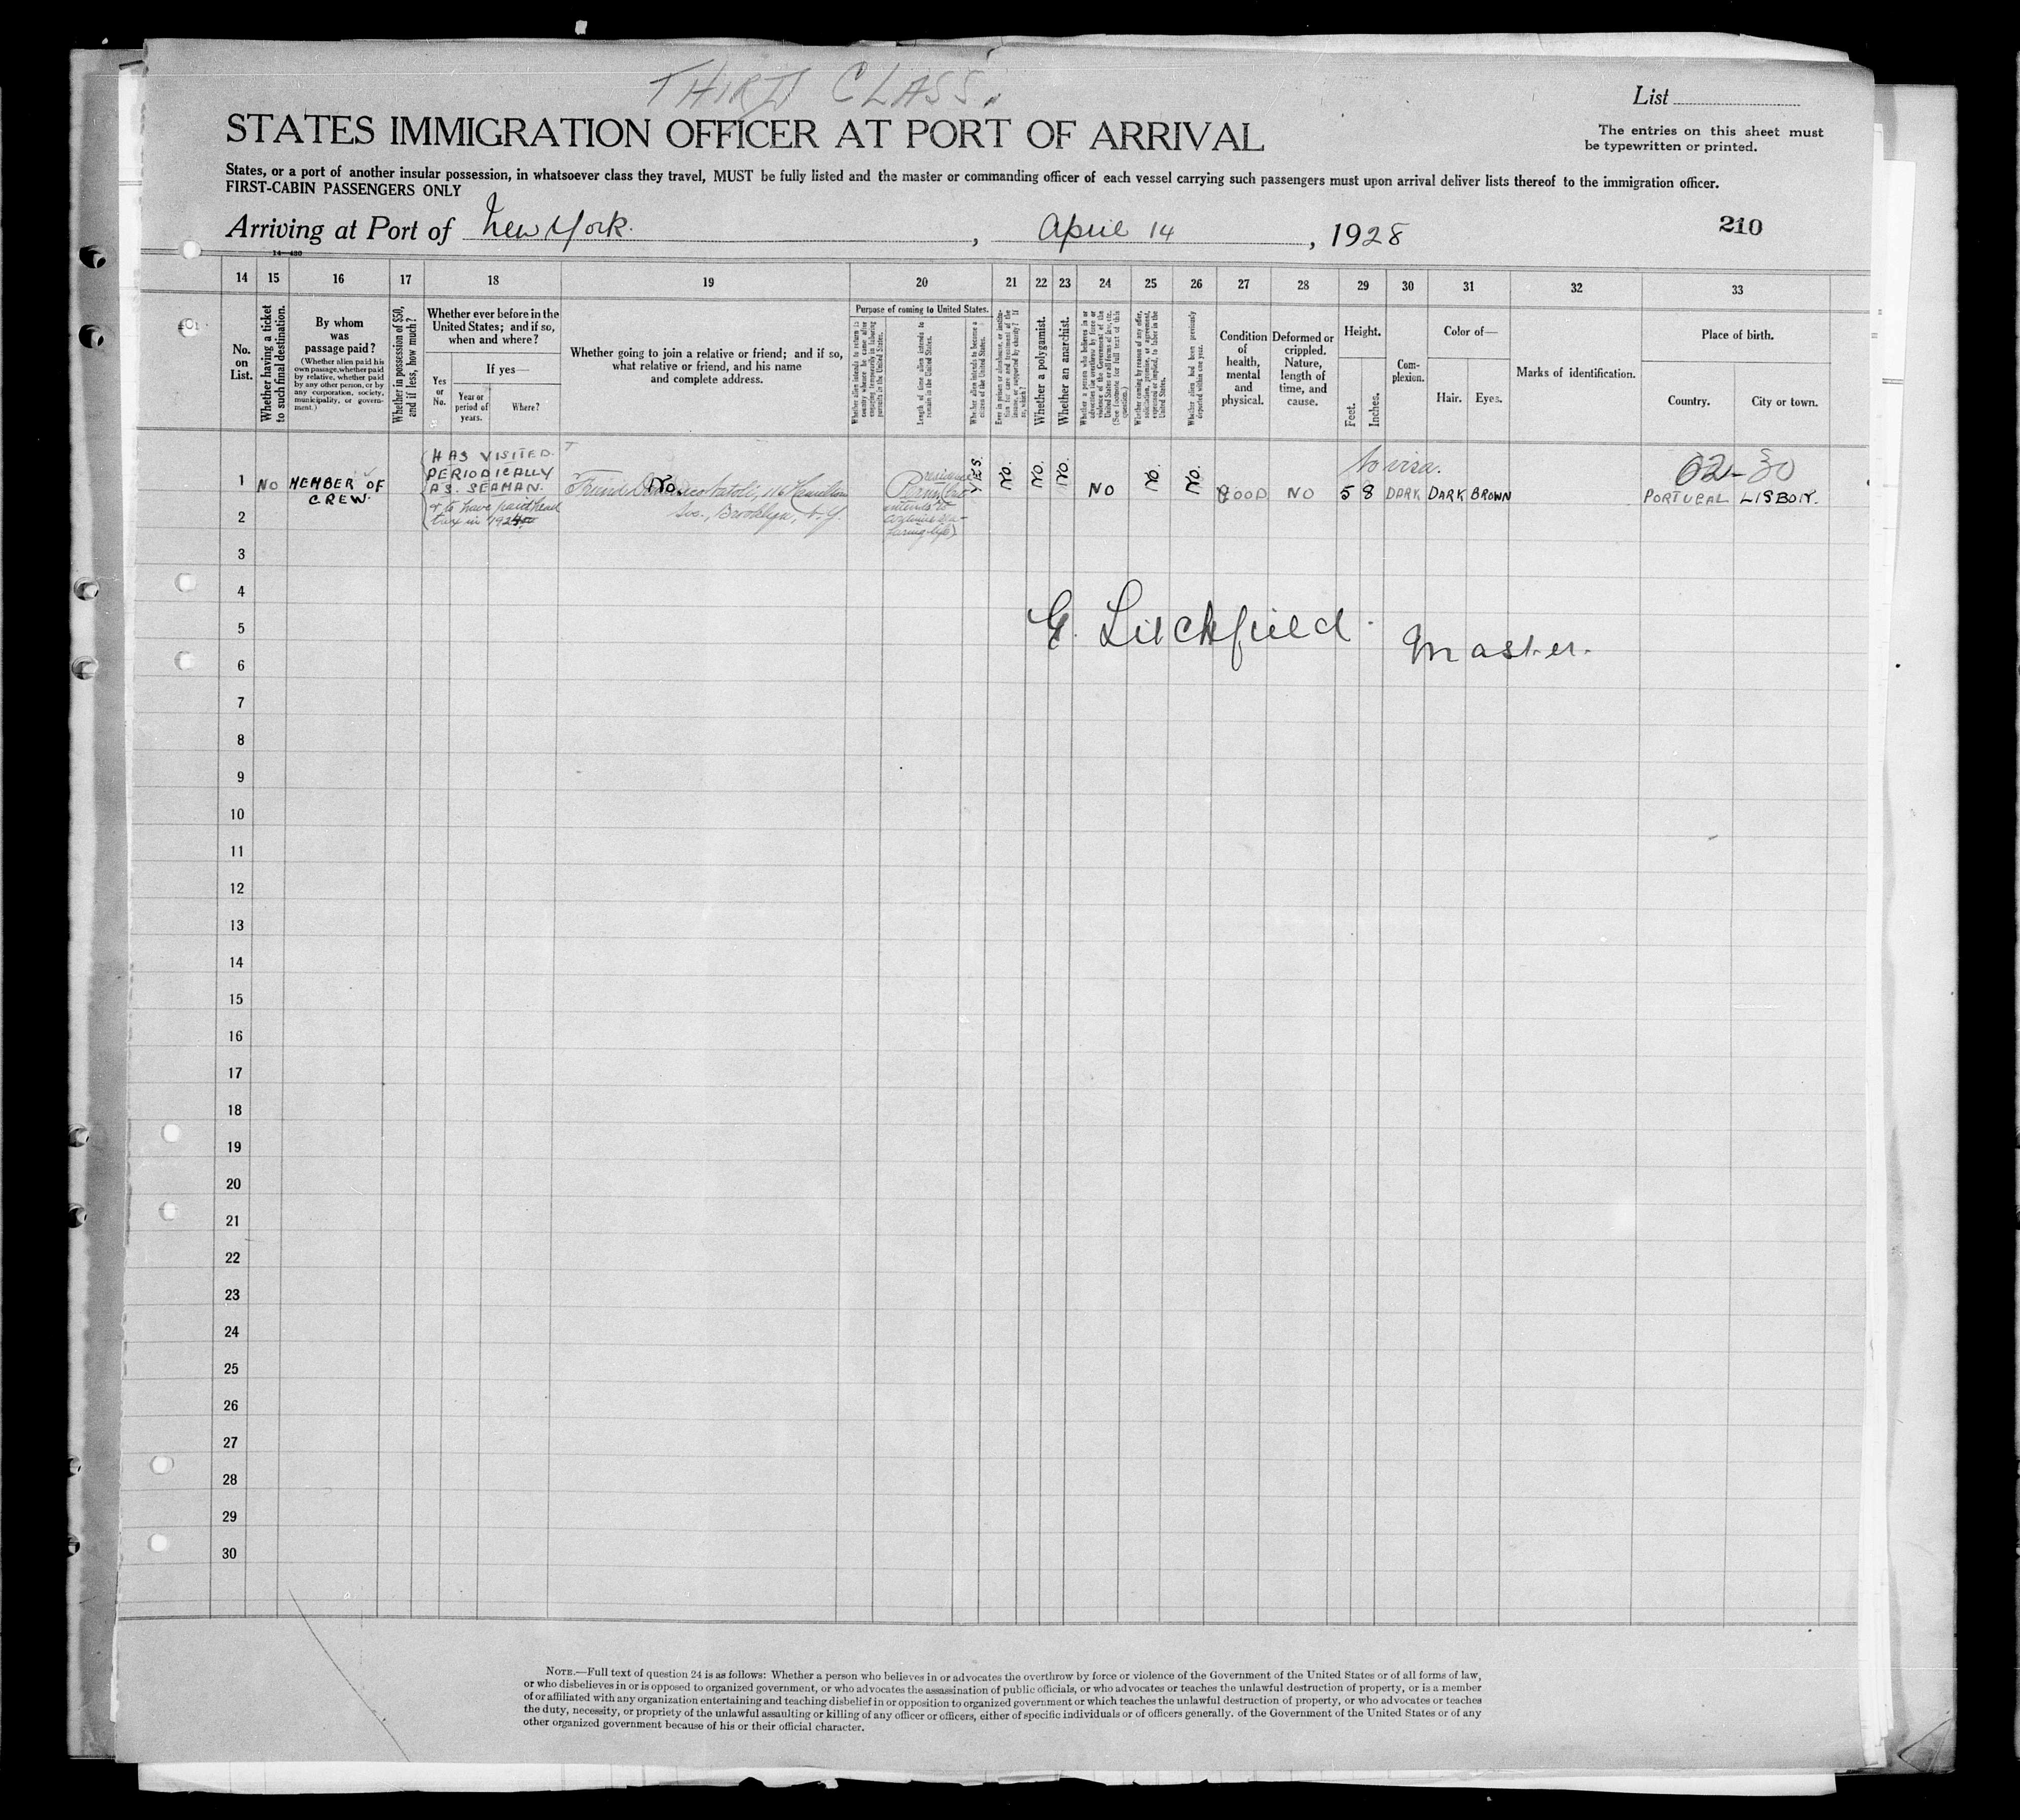 THIRD CLASS.
List
STATES IMMIGRATION OFFICER AT PORT OF ARRIVAL
The entries on this sheet must
be typewritten or printed.
States, or a port of another insular possession, in whatsoever class they travel, MUST be fully listed and the master or commanding officer of each vessel carrying such passengers must upon arrival deliver lists thereof to the immigration officer.
FIRST-CABIN PASSENGERS ONLY
Arriving at Port of New York. , April 14 , 1928
210
14—430
14 15 16 17 18 19 20 21 22 23 24 25 26 27 28 29 30 31 32 33
No. on List.
Whether having a ticket to such final destination.
By whom was passage paid?
(Whether alien paid his own passage, whether paid by relative, whether paid by any other person, or by any corporation, society, municipality, or government.)
Whether in possession of $50, and if less, how much?
Whether ever before in the United States; and if so, when and where?
Yes or No.
If yes—
Year or period of years.
Where?
Whether going to join a relative or friend; and if so, what relative or friend, and his name and complete address.
Purpose of coming to United States.
Whether alien intends to return to country whence he came after engaging temporarily in laboring pursuits in the United States.
Length of time alien intends to remain in the United States.
Whether alien intends to become a citizen of the United States.
Ever in prison or almshouse, or institution for care and treatment of the insane, or supported by charity? If so, which?
Whether a polygamist.
Whether an anarchist.
Whether a person who believes in or advocates the overthrow by force or violence of the Government of the United States or all forms of law, etc. (See footnote for full text of this question.)
Whether coming by reason of any offer, solicitation, promise, or agreement, expressed or implied, to labor in the United States.
Whether alien had been previously deported within one year.
Condition of health, mental and physical.
Deformed or crippled. Nature, length of time, and cause.
Height.
Feet.
Inches.
Complexion.
Color of—
Hair.
Eyes.
Marks of identification.
Place of birth.
Country.
City or town.
1 NO MEMBER OF CREW. HAS VISITED PERIODICALLY AS SEAMAN. No. YES. No. No. No. NO No. No. GOOD NO 5 8 DARK DARK BROWN PORTUGAL LISBON.
to have paid head
tax in 192
Friend
Ave., Brooklyn, N.Y.
intends to
No visa.
2
3
4
G. Litchfield. Master.
5
6
7
8
9
10
11
12
13
14
15
16
17
18
19
20
21
22
23
24
25
26
27
28
29
30
NOTE.—Full text of question 24 is as follows: Whether a person who believes in or advocates the overthrow by force or violence of the Government of the United States or of all forms of law,
or who disbelieves in or is opposed to organized government, or who advocates the assassination of public officials, or who advocates or teaches the unlawful destruction of property, or is a member
of or affiliated with any organization entertaining and teaching disbelief in or opposition to organized government or which teaches the unlawful destruction of property, or who advocates or teaches
the duty, necessity, or propriety of the unlawful assaulting or killing of any officer or officers, either of specific individuals or of officers generally. of the Government of the United States or of any
other organized government because of his or their official character.